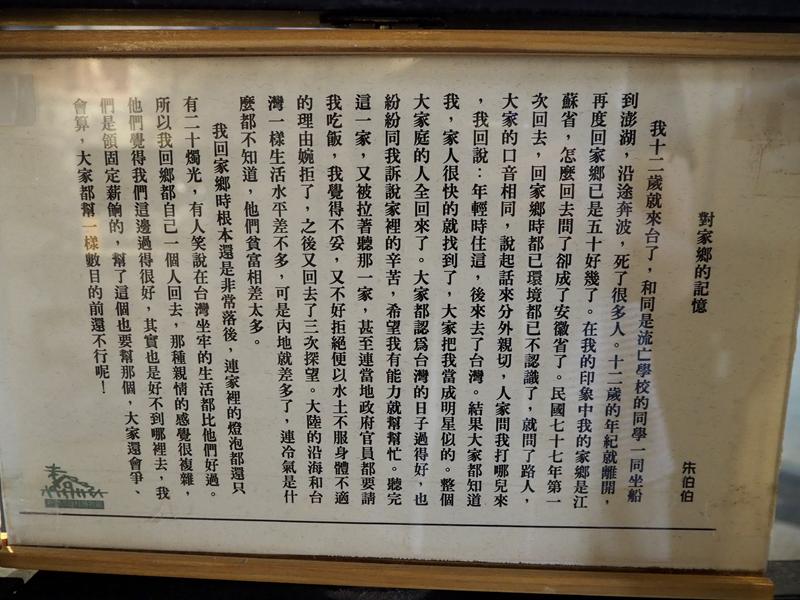 對家鄉的記憶
朱伯伯
我十二歲就來台了，和同是流亡學校的同學一同坐船
到澎湖，沿途奔波，死了很多人。十二歲的年紀就離開，
再度回家鄉已是五十好幾了。在我的印象中我的家鄉是江
蘇省，怎麼回去問了卻成了安徽省了。民國七十七年第一
次回去，回家鄉時都已環境都已不認識了，就問了路人，
大家的口音相同，說起話來分外親切，人家問我打哪兒來
，我回說：年輕時住這，後來去了台灣。結果大家都知道
我，家人很快的就找到了，大家把我當成明星似的。整個
大家庭的人全回來了。大家都認為台灣的日子過得好，也
紛紛同我訴說家裡的辛苦，希望我有能力就幫幫忙。聽完
這一家，又被拉著聽那一家，甚至連當地政府官員都要請
我吃飯，我覺得不妥，又不好拒絕便以水土不服身體不適
的理由婉拒了，之後又回去了三次探望。大陸的沿海和台
灣一樣生活水平差不多，可是內地就差多了，連冷氣是什
麼都不知道，他們貧富相差太多。
我回家鄉時根本還是非常落後，連家裡的燈泡都還只
有二十燭光，有人笑說在台灣坐牢的生活都比他們好過。
所以我回鄉都自己一個人回去，那種親情的感覺很複雜，
他們覺得我們這邊過得很好，其實也是好不到哪裡去，我
們是領固定薪餉的，幫了這個也要幫那個，大家還會爭、
會算，大家都幫一樣數目的前還不行呢！